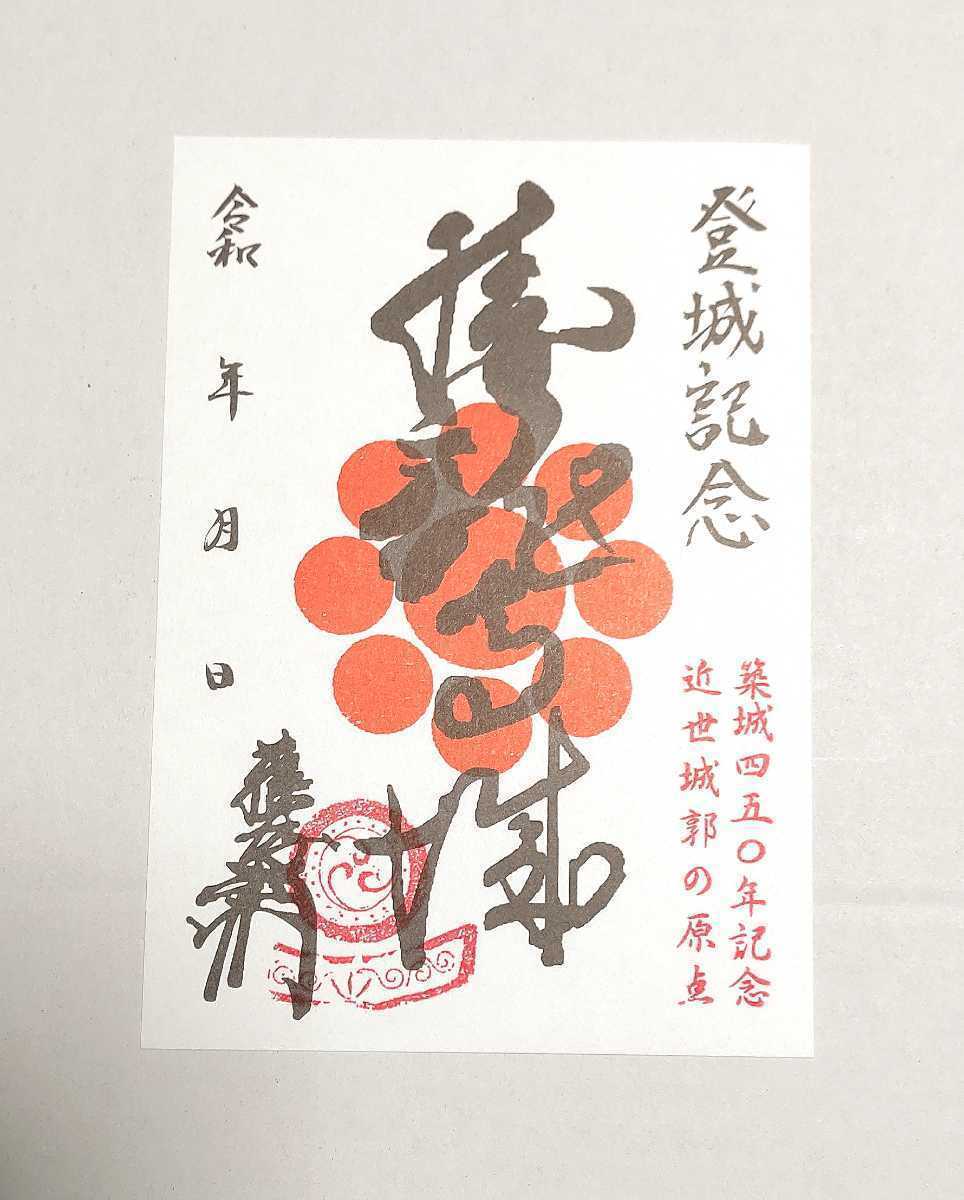 登城記念
築城四五〇年記念
近世城郭の原点
勝龍寺城
令和 年 月 日
藤孝